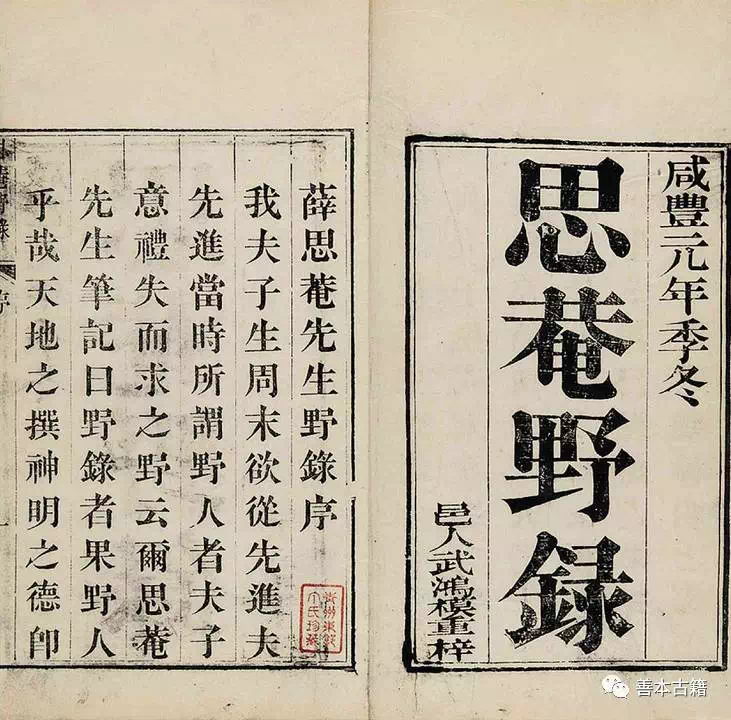 咸豐元年季冬
思菴野録
邑人武鴻模重梓
薛思菴先生野錄序
我夫子生周末欲從先進夫
先進當時所謂野人者夫子
意禮失而求之野云爾思菴
先生筆記曰野錄者果野人
乎哉天地之撰神明之德卽
序
善本古籍